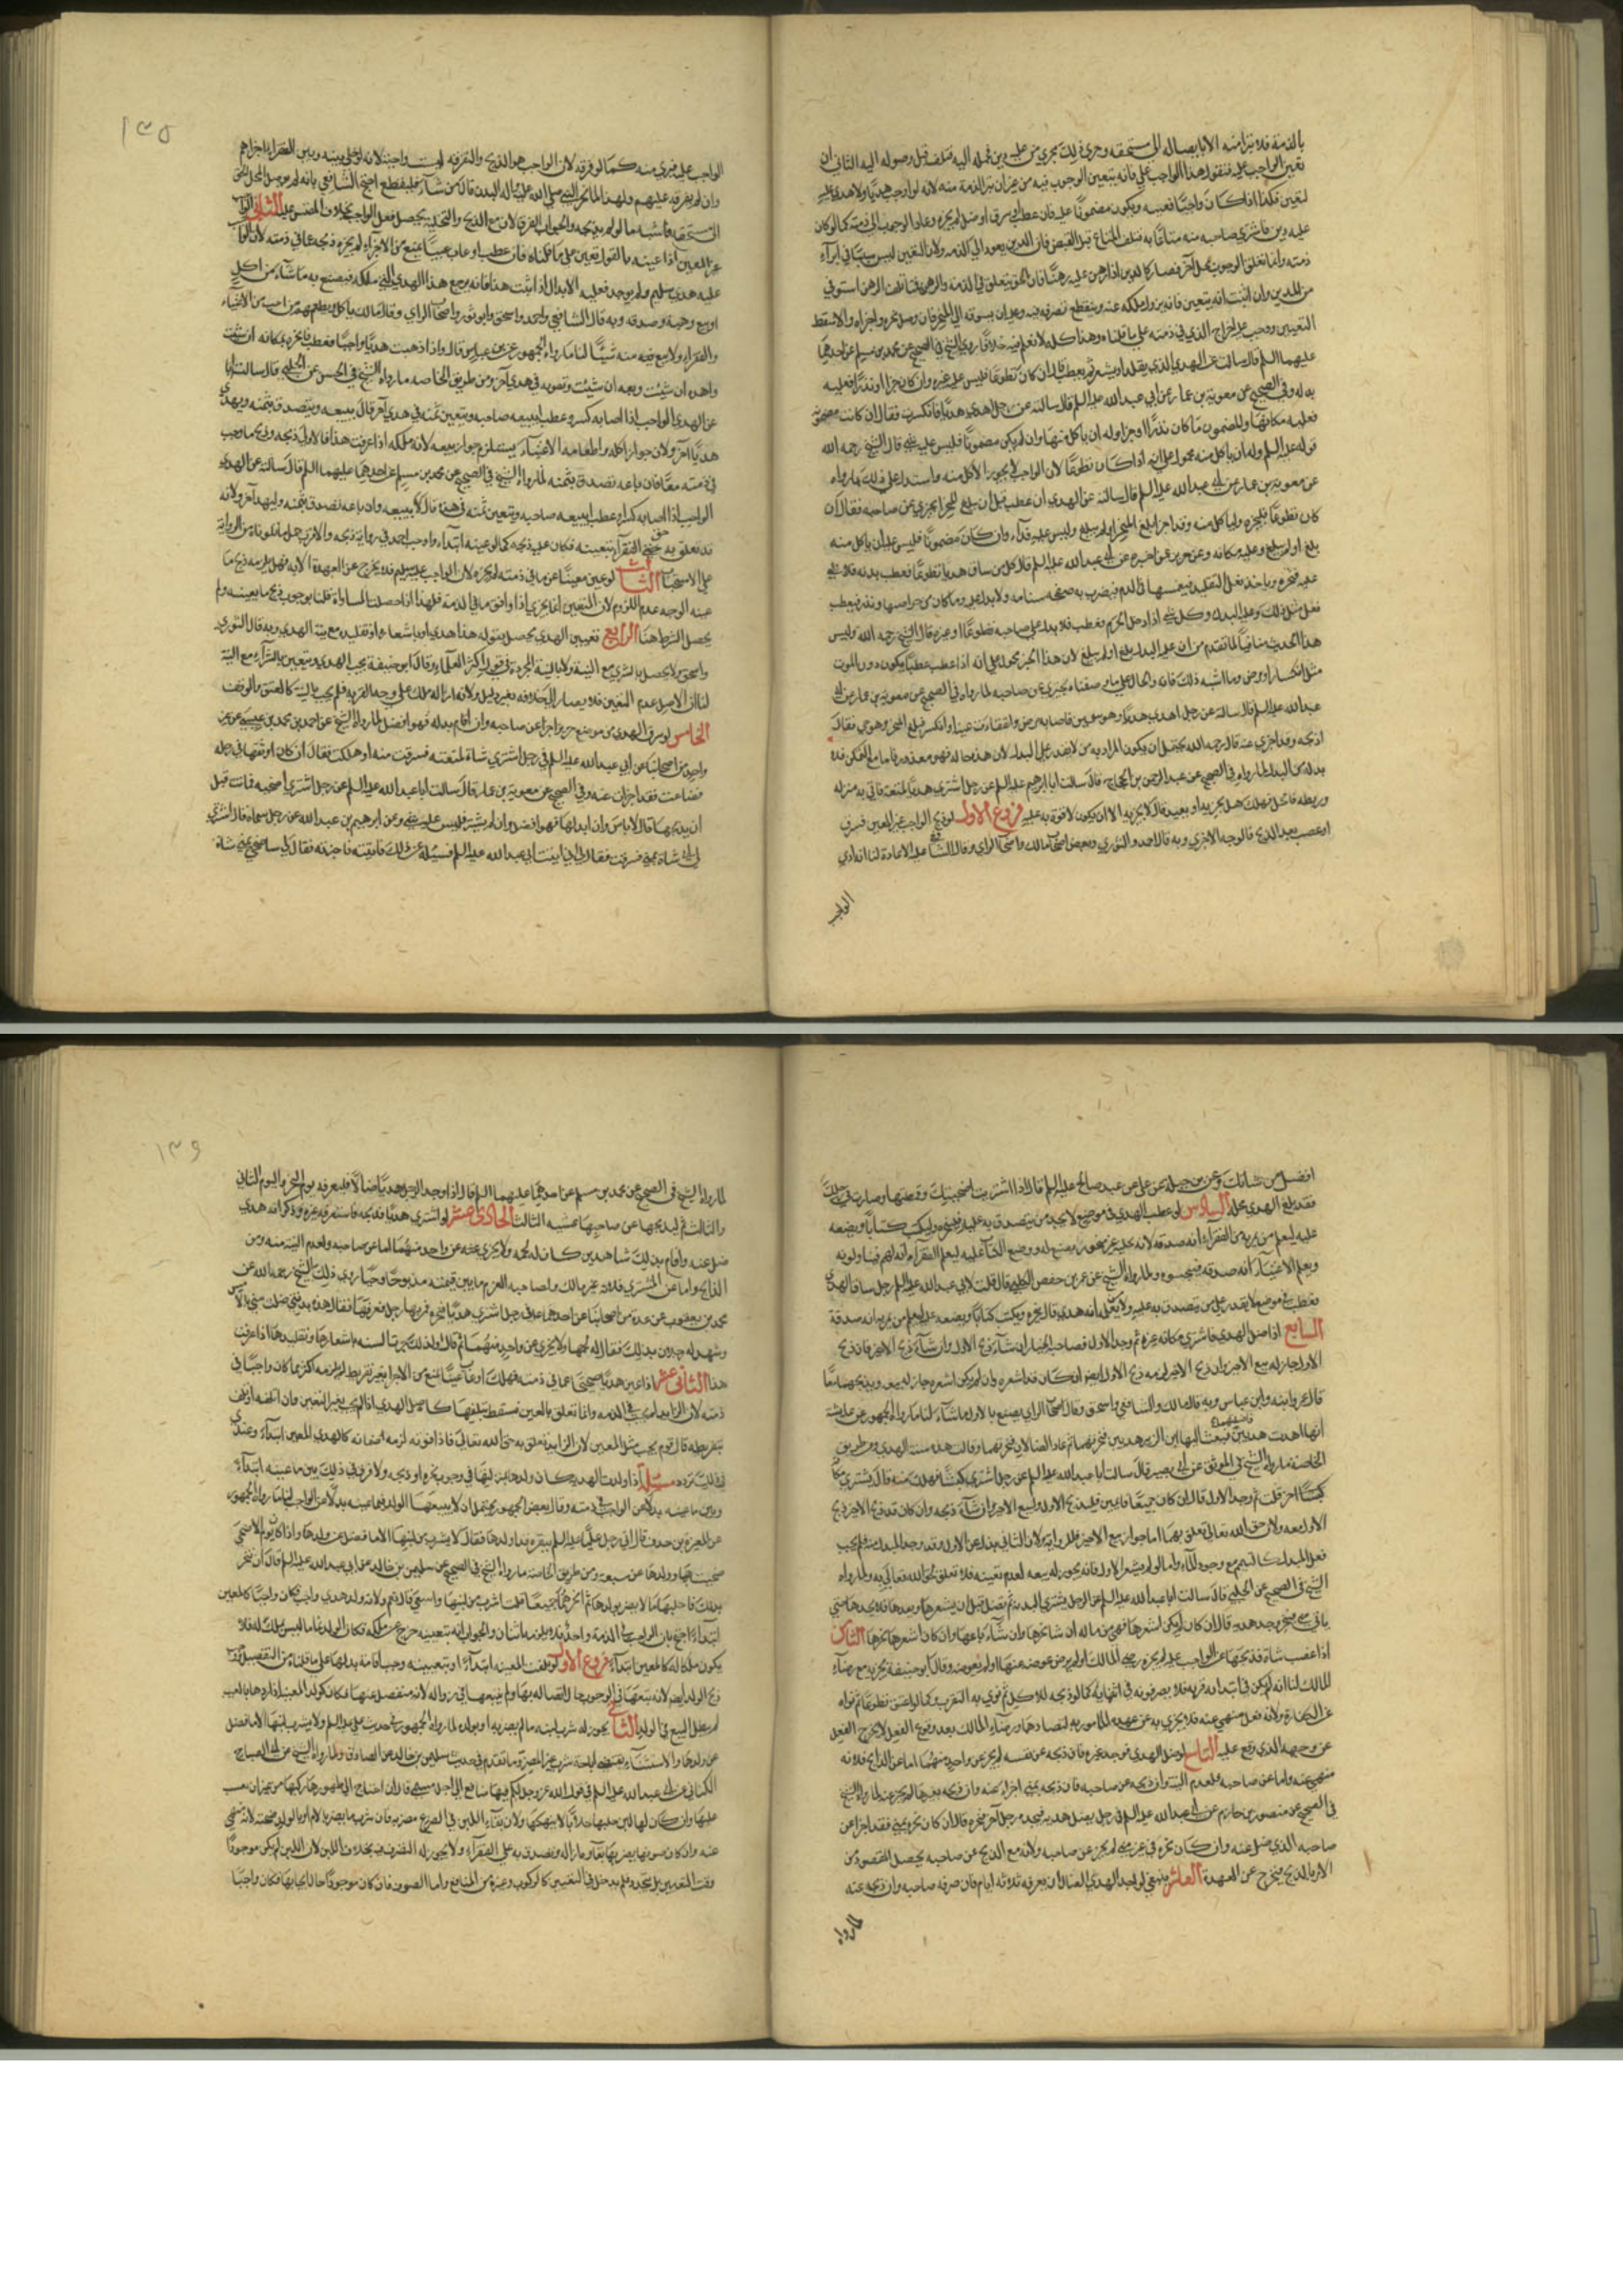 بالذمة فلا تبرأ منه الا بايصاله الى مستحقه وجرى ذلك مجرى من عليه دين فحمله اليه فتلف قبل وصوله اليه الثاني ان
تعين الواجب عليه فيقول هذا الواجب علي فانه يتعين الوجوب فيه من غير ان تبرأ الذمة منه لانه لو اوجب هديا ولا هدي عليه
لتعين فكذا اذا كان واجبا فعينه ويكون مضمونا عليه فان عطب او سرق او ضل لم يجزه وعاد الوجوب الى ذمته كما لو كان
عليه دين فاشترى صاحبه منه متاعا به فتلف المتاع قبل القبض فان الدين يعود الى الذمة ولان التعين ليس سببا في ابراء
ذمته وانما تعلق الوجوب بمحل آخر فصار كالدين اذا رهن عليه رهنا فان الحق يتعلق في الذمة والرهن فمتى تلف الرهن استوفي
من المدين وان اثبت انه يتعين فانه يزول ملكه عنه وينقطع تصرفه فيه وعليه ان يسوقه الى المنحر فان وصل نحره واجزاه والا سقط
التعيين ووجب عليه اخراج الذي في ذمته على ما قلناه وهذا كله لا نعلم فيه خلافا روى الشيخ في الصحيح عن محمد بن مسلم عن احدهما
عليهما السلم قال سالت عن الهدي الذي يقلد او يشعر ثم يعطب قال ان كان تطوعا فليس عليه غيره وان كان جزاء او نذرا فعليه
بدله وفي الصحيح عن معوية بن عمار عن ابي عبد الله عليه السلم قال سالته عن رجل اهدى هديا فانكسرت فقال ان كانت مضمونة
فعليه مكانها والمضمون ما كان نذرا او جزاء وله ان ياكل منها وان لم يكن مضمونا فليس عليه شي قال الشيخ رحمه الله
قوله عليه السلم وله ان ياكل منه محمول على انه اذا كان تطوعا لان الواجب لا يجوز الاكل منه واستدل على ذلك بما رواه
عن معوية بن عمار عن ابي عبد الله عليه السلم قال سالته عن الهدي ان عطب قبل ان يبلغ المنحر ايجزي عن صاحبه فقال ان
كان تطوعا فلينحره ولياكل منه وقد اجزا بلغ المنحر او لم يبلغ وليس عليه فداء وان كان مضمونا فليس عليه ان ياكل منه
بلغ او لم يبلغ وعليه مكانه وعن حريز عن من اخبره عن ابي عبد الله عليه السلم قال كل من ساق هديا تطوعا فعطب هديه فلا شي
عليه ينحره وياخذ نعل التقليد فيغمسها في الدم فيضرب به صفحة سنامه ولا بدل عليه وما كان من جزاء صيد او نذر فعطب
فعل مثل ذلك وعليه البدل وكل شي اذا دخل الحرم فعطب فلا بدل على صاحبه تطوعا او غيره قال الشيخ رحمه الله وليس
هذا الحديث منافيا لما تقدم من ان عليه البدل بلغ او لم يبلغ لان هذا الخبر محمول على انه اذا عطب عطبا يكون دون الموت
مثل انكسار او مرض وما اشبه ذلك فانه والحال على ما وصفناه يجزي عن صاحبه لما رواه في الصحيح عن معوية بن عمار عن ابي
عبد الله عليه السلم قال سالته عن رجل اهدى هديا وهو سمين فاصابه مرض وانفقات عينه او انكسر فبلغ المنحر وهو حي فقال
اذبحه وقد اجزى عنه قال رحمه الله يحتمل ان يكون المراد به من لا يقدر على البدل لان هذه حاله فهو معذور فاما مع التمكن فلا
بد له من البدل لما رواه في الصحيح عن عبد الرحمن بن الحجاج قال سالت ابا ابرهيم عليه السلم عن رجل اشترى هديا لمتعته فاتى به منزله
وربطه فانحل فهلك هل يجزيه او يعيد قال لا يجزيه الا ان يكون لا قوة به عليه فروع الاول لو ذبح الواجب غير المعين فسرق
او غصب بعد الذبح فالوجه الاجزى وبه قال احمد والثوري وبعض اصحاب مالك واصحاب الراي وقال الشافعي عليه الاعادة لنا انه ادى
الواجب
١٣٥
الواجب عليه فبرى منه كما لو فرقه لان الواجب هو الذبح والتفرقة ليست واجبة لانه لو خلى بينه وبين الفقراء اجزاهم
وان لم يفرقه عليهم ولهذا لما نحر النبي صلى الله عليه واله البدن قال من شاء فليقطع احتج الشافعي بانه لم يوصل الحق الى
مستحقه فاشبه ما لو لم يذبحه والجواب الفرق لان مع الذبح والتخلية يحصل فعل الواجب بخلاف المقيس عليه الثاني الواجب
غير المعين اذا عينه بالقول تعين على ما قلناه فان عطب او عاب عيبا يمنع من الاجزاء لم يجزه ذبحه عما في ذمته لان الواجب
عليه هدي سليم ولم يوجد فعليه الابدال اذا ثبت هذا فانه يرجع هذا الهدي الى ملكه فيصنع به ما شاء من اكل
او بيع وهبة وصدقة وبه قال الشافعي واحمد واسحق وابو ثور واصحاب الراي وقال مالك ياكل ويطعم من احب من الاغنياء
والفقراء ولا يبيع منه شيئا لنا ما رواه الجمهور عن ابن عباس قال واذا اهديت هديا واجبا فعطب فانحره مكانه ان شئت
واهده ان شئت وبعه ان شئت وتقو به في هدي آخر ومن طريق الخاصة ما رواه الشيخ في الحسن عن الحلبي قال سالته
عن الهدي الواجب اذا اصابه كسر او عطب ايبيعه صاحبه ويستعين بثمنه في هدي آخر قال يبيعه ويتصدق بثمنه ويهدي
هديا آخر ولان جواز اكله واطعامه الاغنياء يستلزم جواز بيعه لانه ملكه اذا عرفت هذا فالاولى ذبحه وذبح ما وجب
في ذمته معا فان باعه تصدق بثمنه لما رواه الشيخ في الصحيح عن محمد بن مسلم عن احدهما عليهما السلم قال سالته عن الهدي
الواجب اذا اصابه كسر او عطب ايبيعه صاحبه ويستعين بثمنه في هدي قال لا يبيعه وان باعه تصدق بثمنه وليهد آخر ولانه
قد تعلق به حق الفقراء بتعيينه فكان عليه ذبحه كما لو عينه ابتداء واوجب احمد في رواية ذبحه والاقرب حمل ما تلوناه من الرواية
على الاستحباب الثالث لو عين معيبا عما في ذمته لم يجزه لان الواجب عليه سليم فلا يخرج عن العهدة الا به وهل يلزمه ذبح ما
عينه الوجه عدم اللزوم لان التعيين انما يجزي اذا وافق ما في الذمة فلهذا اذا حصلت المساواة قلنا بوجوب ذبح ما يعينه ولم
يحصل الشرط هنا الرابع تعيين الهدي يحصل بقوله هذا هدي او باشعاره او تقليده مع نية الهدي وبه قال الثوري
واسحق ولا يحصل بالشرى مع النية ولا بالنية المجردة في قول اكثر العلماء وقال ابو حنيفة يجب الهدي ويتعين بالشراء مع النية
لنا ان الاصل عدم التعين فلا يصار الى خلافه بغير دليل ولانه ازالة ملك على وجه القربة فلم يجب بالنية كالعتق والوقف
الخامس لو سرق الهدي من موضع حريز اجزا عن صاحبه وان اقام بدله فهو افضل لما رواه الشيخ عن احمد بن محمد بن عيسى عن غير
واحد من اصحابنا عن ابي عبد الله عليه السلم في رجل اشترى شاة لمتعته فسرقت منه او هلكت فقال ان كان اوثقها في رحله
فضاعت فقد اجزات عنه وفي الصحيح عن معوية بن عمار قال سالت ابا عبد الله عليه السلم عن رجل اشترى اضحية فماتت قبل
ان يذبحها قال لا باس وان ابدلها فهو افضل وان لم يشتر فليس عليه شي وعن ابرهيم بن عبد الله عن رجل سماه قال اشترى
لي ابي شاة بمنى فسرقت فقال لي ابي ايت ابي عبد الله عليه السلم فسئله عن ذلك فاتيته فاخبرته فقال لي ما ضحي بمنى شاة
افضل من شاتك وعن علي عن عبد صالح عليه السلم قال اذا اشتريت اضحيتك وقمطتها وصارت في رحلك
فقد بلغ الهدي محله السادس لو عطب الهدي في موضع لا يجد من يتصدق به عليه فلينحره وليكتب كتابا ويضعه
عليه ليعلم من يمر به من الفقراء انه صدقة
ويعلم الاغنياء انه صدقة فيجتنبوه ولما رواه الشيخ عن عمر بن حفص الكلبي قال قلت لابي عبد الله عليه السلم رجل ساق الهدي
فعطب في موضع لا يقدر على من يتصدق به عليه ولا يعلم انه هدي قال ينحره ويكتب كتابا ويضعه عليه ليعلم من يمر به انه صدقة
السابع اذا ضل الهدي فاشترى مكانه غيره ثم وجد الاول فصاحبه بالخيار ان شاء ذبح الاول وان شاء ذبح الاخير فان ذبح
الاول جاز له بيع الاخير وان ذبح الاخير لزمه ذبح الاول ايضا ان كان قد اشعره وان لم يكن اشعره جاز له بيعه ويذبحهما معا
قال عمر وابنه وابن عباس وبه قال مالك والشافعي واسحق وقال اصحاب الراي يصنع بالاول ما شاء لنا ما رواه الجمهور عن عايشة
انها اهدت هديين فاضلتهما فبعث اليها ابن الزبير هديين فنحرتهما ثم عاد الضالان فنحرتهما وقالت هذه سنة الهدي ومن طريق
الخاصة ما رواه الشيخ في الموثق عن ابي بصير قال سالت ابا عبد الله عليه السلم عن رجل اشترى كبشا فهلك منه قال يشتري مكانه
كبشا آخر قلت ثم وجد الاول قال ان كانا جميعا قايمين فليذبح الاول وليبع الاخير وان شاء ذبحه وان كان قد ذبح الاخير ذبح
الاول معه ولان حق الله تعالى تعلق بهما
فعل المبدل كالتيمم مع وجود الماء واما لو لم يشعر الاول فانه يجوز له بيعه لعدم تعينه فلا تعلق لحق الله تعالى به ولما رواه
الشيخ في الصحيح عن الحلبي قال سالت ابا عبد الله عليه السلم عن الرجل يشتري البدنة ثم تضل قبل ان يشعرها ويقلدها فلا يجدها حتى
ياتي منى فينحر ويجد هديه قال ان كان لم يكن اشعرها فهي من ماله ان شاء نحرها وان شاء باعها وان كان اشعرها نحرها الثامن
اذا غصب شاة فذبحها عن الواجب عليه لم يجزه رضي المالك او لم يرض عوضه عنها او لم يعوضه وقال ابو حنيفة يجزيه مع رضاء
المالك لنا انه لم يكن في ابتدائه قربة فلا يصير قربة في اثنائه كما لو ذبحه للاكل ثم نوى به التقرب وكما لو اعتق تطوعا ثم نواه
عن الكفارة ولانه فعل منهي عنه فلا يجزي به عن عهدة المامور به لتضادهما ورضاء المالك بعد وقوع الفعل لا يخرج الفعل
عن وجهه الذي وقع عليه التاسع لو ضل الهدي فوجده غيره فان ذبحه عن نفسه لم يجز عن واحد منهما اما عن الذابح فلانه
منهي عنه واما عن صاحبه فلعدم النية وان ذبحه عن صاحبه فان ذبحه بمنى اجزاء عنه وان ذبحه بغيرها لم يجز عنه لما رواه الشيخ
في الصحيح عن منصور بن حازم عن ابي عبد الله عليه السلم في رجل يضل هديه فيجده رجل آخر فينحره قال ان كان نحره بمنى فقد اجزا عن
صاحبه الذي ضل عنه وان كان نحره في غير منى لم يجز عن صاحبه ولانه مع الذبح عن صاحبه يحصل المقصود من
الامر بالذبح فيخرج عن العهدة العاشر ينبغي لواجد الهدي الضال ان يعرفه ثلاثة ايام فان عرفه صاحبه وان ذبحه عنه
لما رواه
١٣٦
لما رواه الشيخ في الصحيح عن محمد بن مسلم عن احدهما عليهما السلم قال اذا وجد الرجل هديا ضالا فليعرفه يوم النحر واليوم الثاني
والثالث ثم ليذبحها عن صاحبها عشية الثالث الحادي عشر لو اشترى هديا فذبحه فاستعرفه غيره وذكر انه هدي
ضل عنه واقام بذلك شاهدين كان له لحمه ولا يجزي عنه عن واحد منهما اما عن صاحبه ولعدم النية منه ومن
الذابح واما عن المشتري فلانه غير مالك ولصاحبه الغرم ما بين قيمته مذبوحا وحيا روى ذلك الشيخ رحمه الله عن
محمد بن يعقوب عن عدة من اصحابنا عن احدهما في رجل اشترى هديا فنحره فمر بها رجل فعرفها فقال هذه بدنتي ضلت مني بالامس
وشهد له رجلان بذلك فقال له لحمها ولا يجزي عن واحد منهما ثم قال ولذلك جرت السنة باشعارها وتقليدها اذا عرفت
هذا الثاني عشر اذا عين هديا صحيحا عما في ذمته فهلك او عاب عيبا يمنع من الاجزا بغير تفريط لم يلزمه اكثر مما كان واجبا في
ذمته لان الزايد لم يجب في الذمة وانما تعلق بالعين فسقط بتلفها كاصل الهدي اذا لم يجب بغير التعين وان اتلفه او تلف
بتفريطه قال قوم يجب مثل المعين لان الزايد تعلق به حق الله تعالى فاذا فوته لزمه ضمانه كالهدي المعين ابتداء وعندي
في ذلك تردد مسئلة اذا ولدت الهدية كان ولدها بمنزلتها في وجوب نحره او ذبحه ولا فرق في ذلك بين ما عينه ابتداء
وبين ما عينه بدلا عن الواجب في ذمته وقال بعض الجمهور يحتمل ان لا يتبعها الولد فيما عينه بدلا عن الواجب لنا ما رواه الجمهور
عن المغيرة بن حذف قال اتى رجل عليا عليه السلم ببقرة قد اولدها فقال لا تشرب من لبنها الا ما فضل عن ولدها واذا كان يوم الاضحى
ضحيت بها وولدها عن سبعة ومن طريق الخاصة ما رواه الشيخ في الصحيح عن سليمن بن خالد عن ابي عبد الله عليه السلم قال ان نتجت
بدنتك فاحلبها ما لا يضر بولدها ثم انحرهما جميعا قلت اشرب من لبنها واسقي قال نعم ولانه ولد هدي واجب فكان واجبا كالمعين
ابتداء احتج بان الواجب في الذمة واحد فلا يلزمه اثنان والجواب انه بتعيينه خرج عن ملكه فكان الولد نماء ما ليس بملك له فلا
يكون ملكا له كالمعين ابتداء فروع الاول لو تلفت المعينة ابتداء او بتعيينه وجب اقامة بدلها على ما قلناه من التفصيل ووجب
ذبح الولد ايضا لانه تبعها في الوجوب حال اتصاله بها ولم يتبعها في زواله لانه منفصل عنها فكان كولد المعيبة اذا ردها بالعيب
لم يبطل البيع في الولد الثاني يجوز له شرب لبنه ما لم يضر به او بولده لما رواه الجمهور في حديث علي عليه السلم ولا يشرب لبنها الا ما فضل
عن ولدها والاستثناء يقتضي اباحة شرب غير المضر وما تقدم في حديث سليمن بن خالد عن الصادق ولما رواه الشيخ عن ابي الصباح
الكناني عن ابي عبد الله عليه السلم في قول الله عز وجل لكم فيها منافع الى اجل مسمى قال ان احتاج الى ظهورها ركبها من غير ان يعنف
عليها وان كان لها لبن حلبها حلابا لا ينهكها ولان بقاء اللبن في الضرع مضر به فان شرب ما يضر بالام او بالولد ضمنه لانه منهي
عنه وان كان صوفها يضر بها بقاؤه ازاله وتصدق به على الفقراء ولا يجوز له التصرف فيه بخلاف اللبن لان اللبن لم يكن موجودا
وقت التعيين بل يتجدد فلم يدخل في التعيين كالركوب وغيره من المنافع واما الصوف فان كان موجودا حال ايجابها فكان واجبا